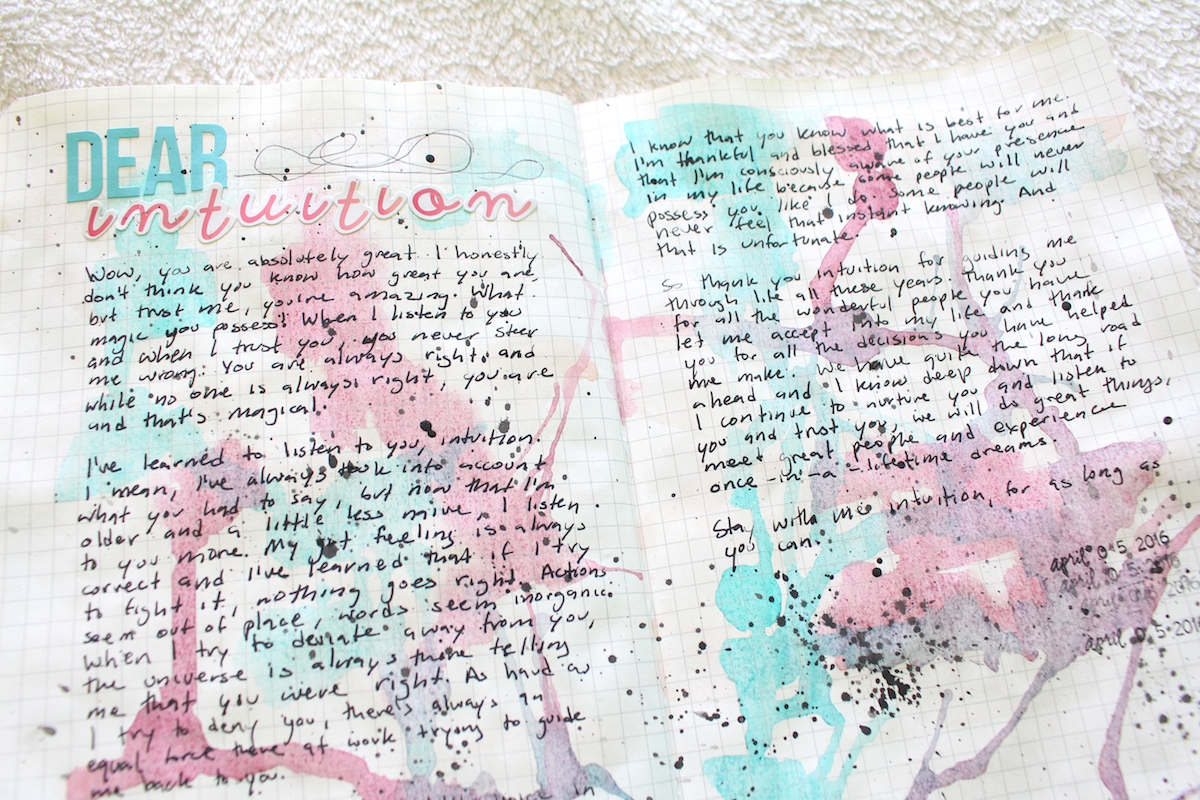 DEAR
intuition
Wow, you are absolutely great. I honestly
don't think you know how great you are,
but trust me, you're amazing. What
magic you possess! When I listen to you
and when I trust you, you never steer
me wrong. You are always right and
while no one is always right, you are
and that's magical.
I've learned to listen to you, intuition.
I mean, I've always took into account
what you had to say, but now that I'm
older and a little less naive, I listen
to you more. My gut feeling is always
correct and I've learned that if I try
to fight it, nothing goes right. Actions
seem out of place, words seem inorganic.
When I try to deviate away from you,
the universe is always there telling
me that you were right. As hard as
I try to deny you, there's always an
equal force there at work trying to guide
me back to you.
in
I know that you know what is best for me.
I'm thankful and blessed that I have you and
that I'm consciously aware of your presence
in my life because some people will never
possess you like I do. Some people will
never feel that instant knowing. And
that is unfortunate.
So thank you intuition for guiding me
through life all these years. Thank you
for all the wonderful people you have
let me accept into my life and thank
you for all the decisions you have helped
me make. We have quite the long road
ahead and I know deep down that if
I continue to nurture you and listen to
you and trust you, we will do great things,
meet great people and experience
once-in-a-lifetime dreams.
Stay with me intuition, for as long as
you can.
april 05 2016
april 05 2016
april 05 2016
april 05 2016